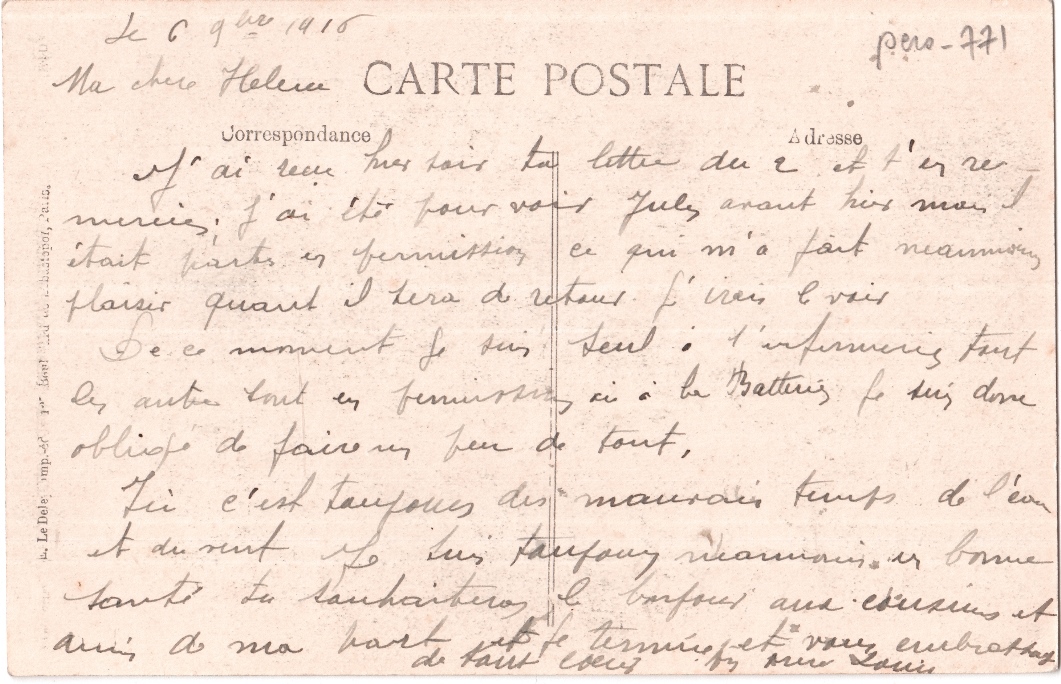 Le 6 9bre 1916
pero-771
Ma chere Helene
CARTE POSTALE
Correspondance
Adresse
J'ai recu hier soir ta lettre du 2 et t'en re-
mercie, j'ai été pour voir Jules avant hier mais il
était partis en permission ce qui m'a fait neanmoins
plaisir quant il sera de retour j'irais le voir
De ce moment je suis seul à l'infirmerie tout
les autre sont en permission ici à la Batterie je suis donc
obligé de faire un peu de tout,
Ici c'est toujours des mauvais temps de l'eau
et du vent Je suis toujours neanmoins en bonne
santé tu souhaiteras le bonjour aux cousins et
amis de ma part et je termine et vous embrassant
de tout cœur Louis
E. Le Deley, imp.-éd. Paris.